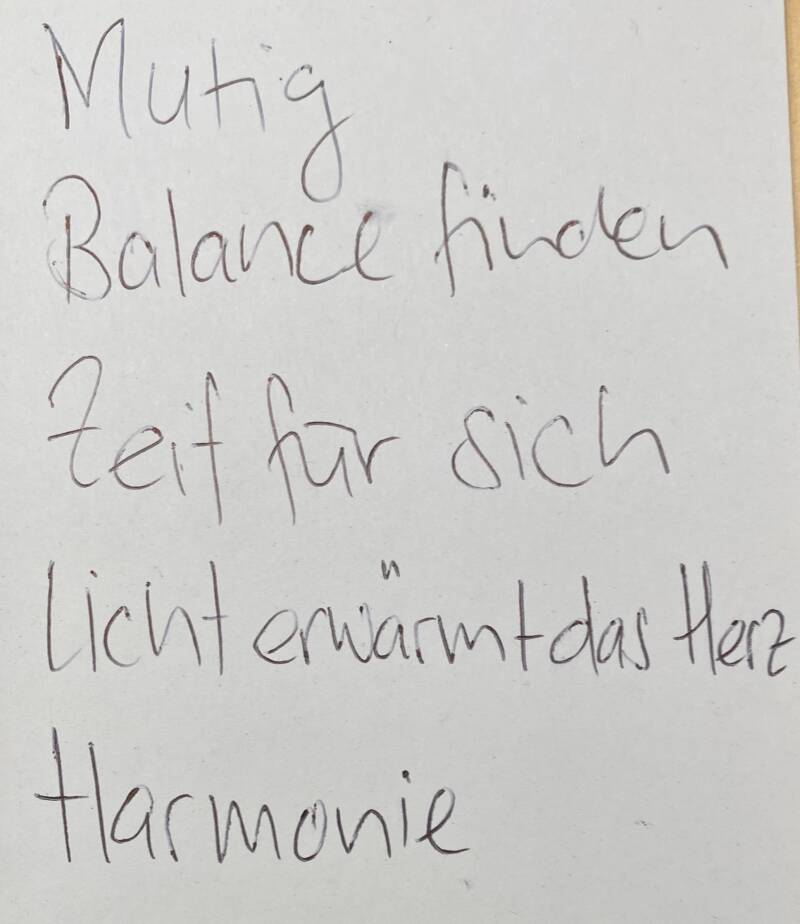 Mutig
Balance finden
Zeit für sich
Licht erwärmt das Herz
Harmonie